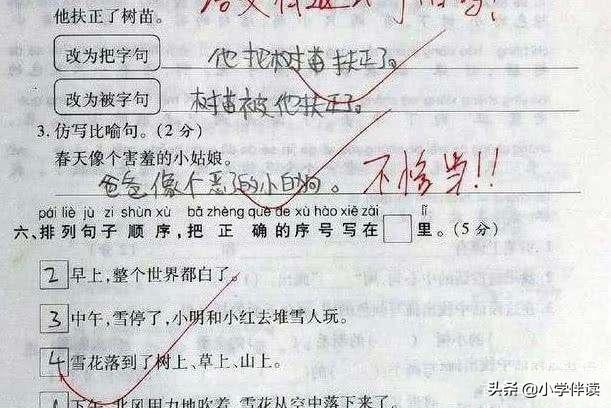 他扶正了树苗。
改为把字句
他把树苗扶正了。
改为被字句
树苗被他扶正了。
3. 仿写比喻句。(2 分)
春天像个害羞的小姑娘。
爸爸像个恶了的小白狗。 不恰当!!
pái liè jù zi shùn xù bǎ zhèng què de xù hào xiě zài lǐ
六、排列句子 顺序,把 正 确的序号写在 里。(5 分)
2 早上,整个世界都白了。
3 中午,雪停了,小明和小红去堆雪人玩。
4 雪花落到了树上、草上、山上。
1 下午,北风用力地吹着,雪花从空中落下来了。
头条 @小学伴读